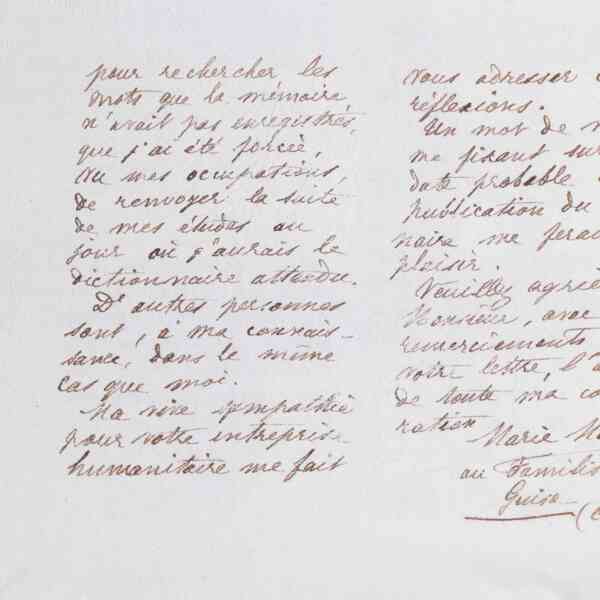 pour rechercher les
mots que la mémoire
n'avait pas enregistrés,
que j'ai été forcée,
vu mes occupations,
de renvoyer la suite
de mes études au
jour où j'aurais le
dictionnaire attendu.
D'autres personnes
sont, à ma connais-
sance, dans le même
cas que moi.
Ma vive sympathie
pour votre entreprise
humanitaire me fait
vous adresser
réflexions.
Un mot de
me fixant sur
date probable
publication du
naire me ferai
plaisir.
Veuillez agrée
Monsieur, avec
remerciements
votre lettre, l'a
de toute ma co
ration
Marie
au Familis
Guise